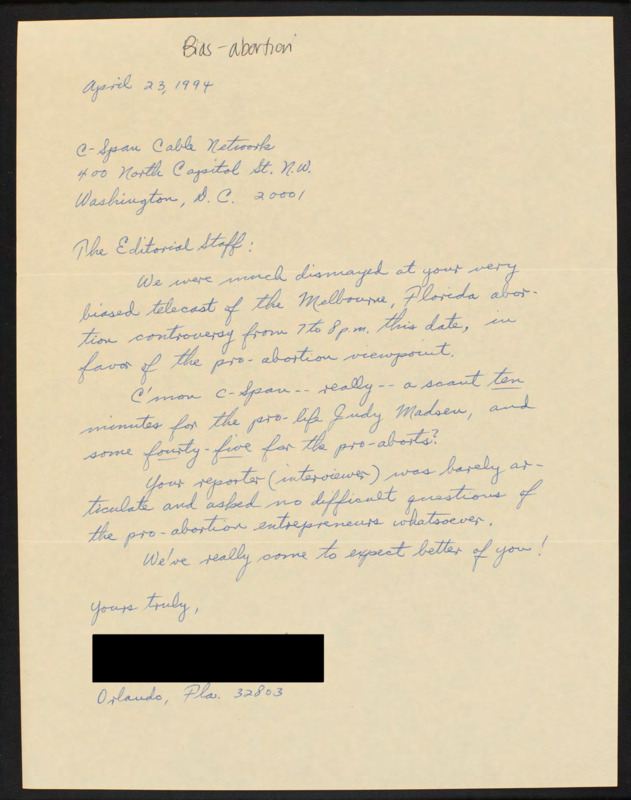 Bias - abortion
April 23, 1994
C-Span Cable Network
400 North Capitol St. N.W.
Washington, D.C. 20001
The Editorial Staff:
We were much dismayed at your very
biased telecast of the Melbourne, Florida abor-
tion controversy from 7 to 8 p.m. this date, in
favor of the pro-abortion viewpoint.
C'mon C-Span -- really -- a scant ten
minutes for the pro-life Judy Madsen, and
some fourty-five for the pro-aborts?
Your reporter (interviewer) was barely ar-
ticulate and asked no difficult questions of
the pro-abortion entrepreneurs whatsoever.
We've really come to expect better of you!
Yours truly,
Orlando, Fla. 32803